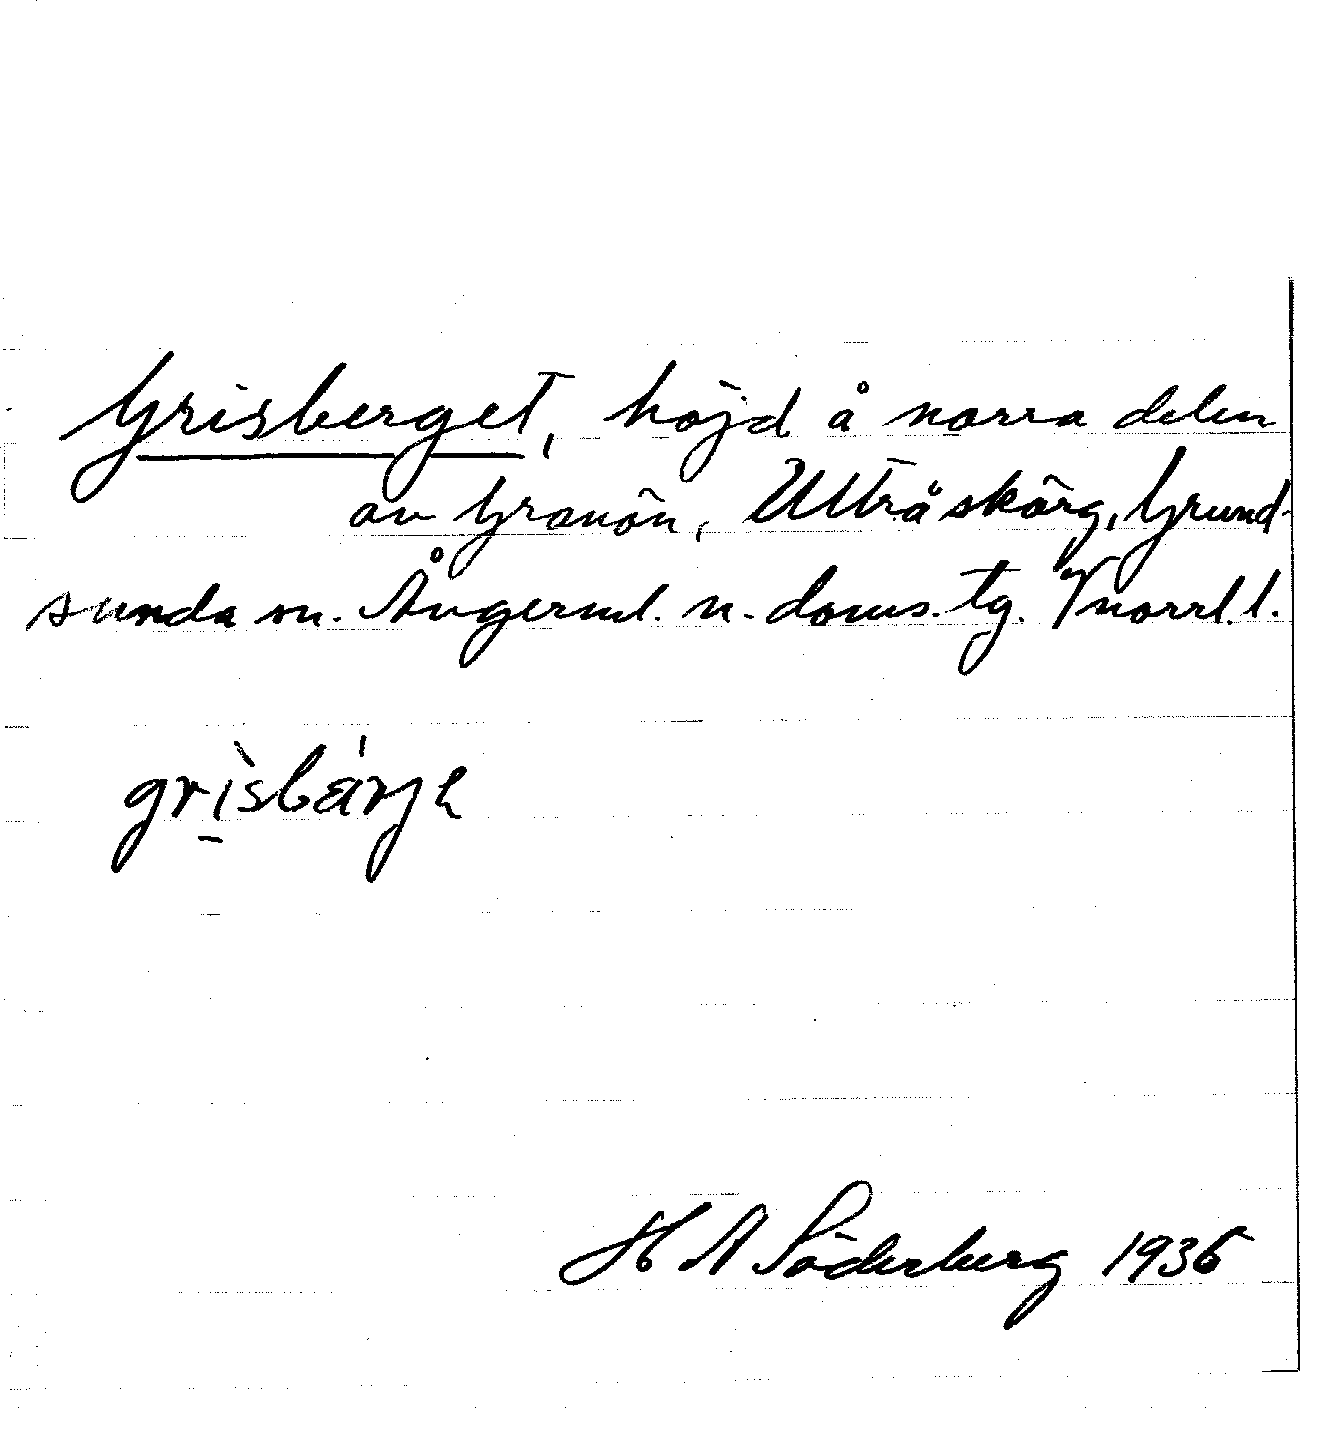 Grisberget, höjd å norra delen
av Granön, Ultråskärg, Grund-
sunda sn. Ångerml. n. doms. tg. Vnorrl. l.
grìsbä́rjɐ
H A Söderberg 1935